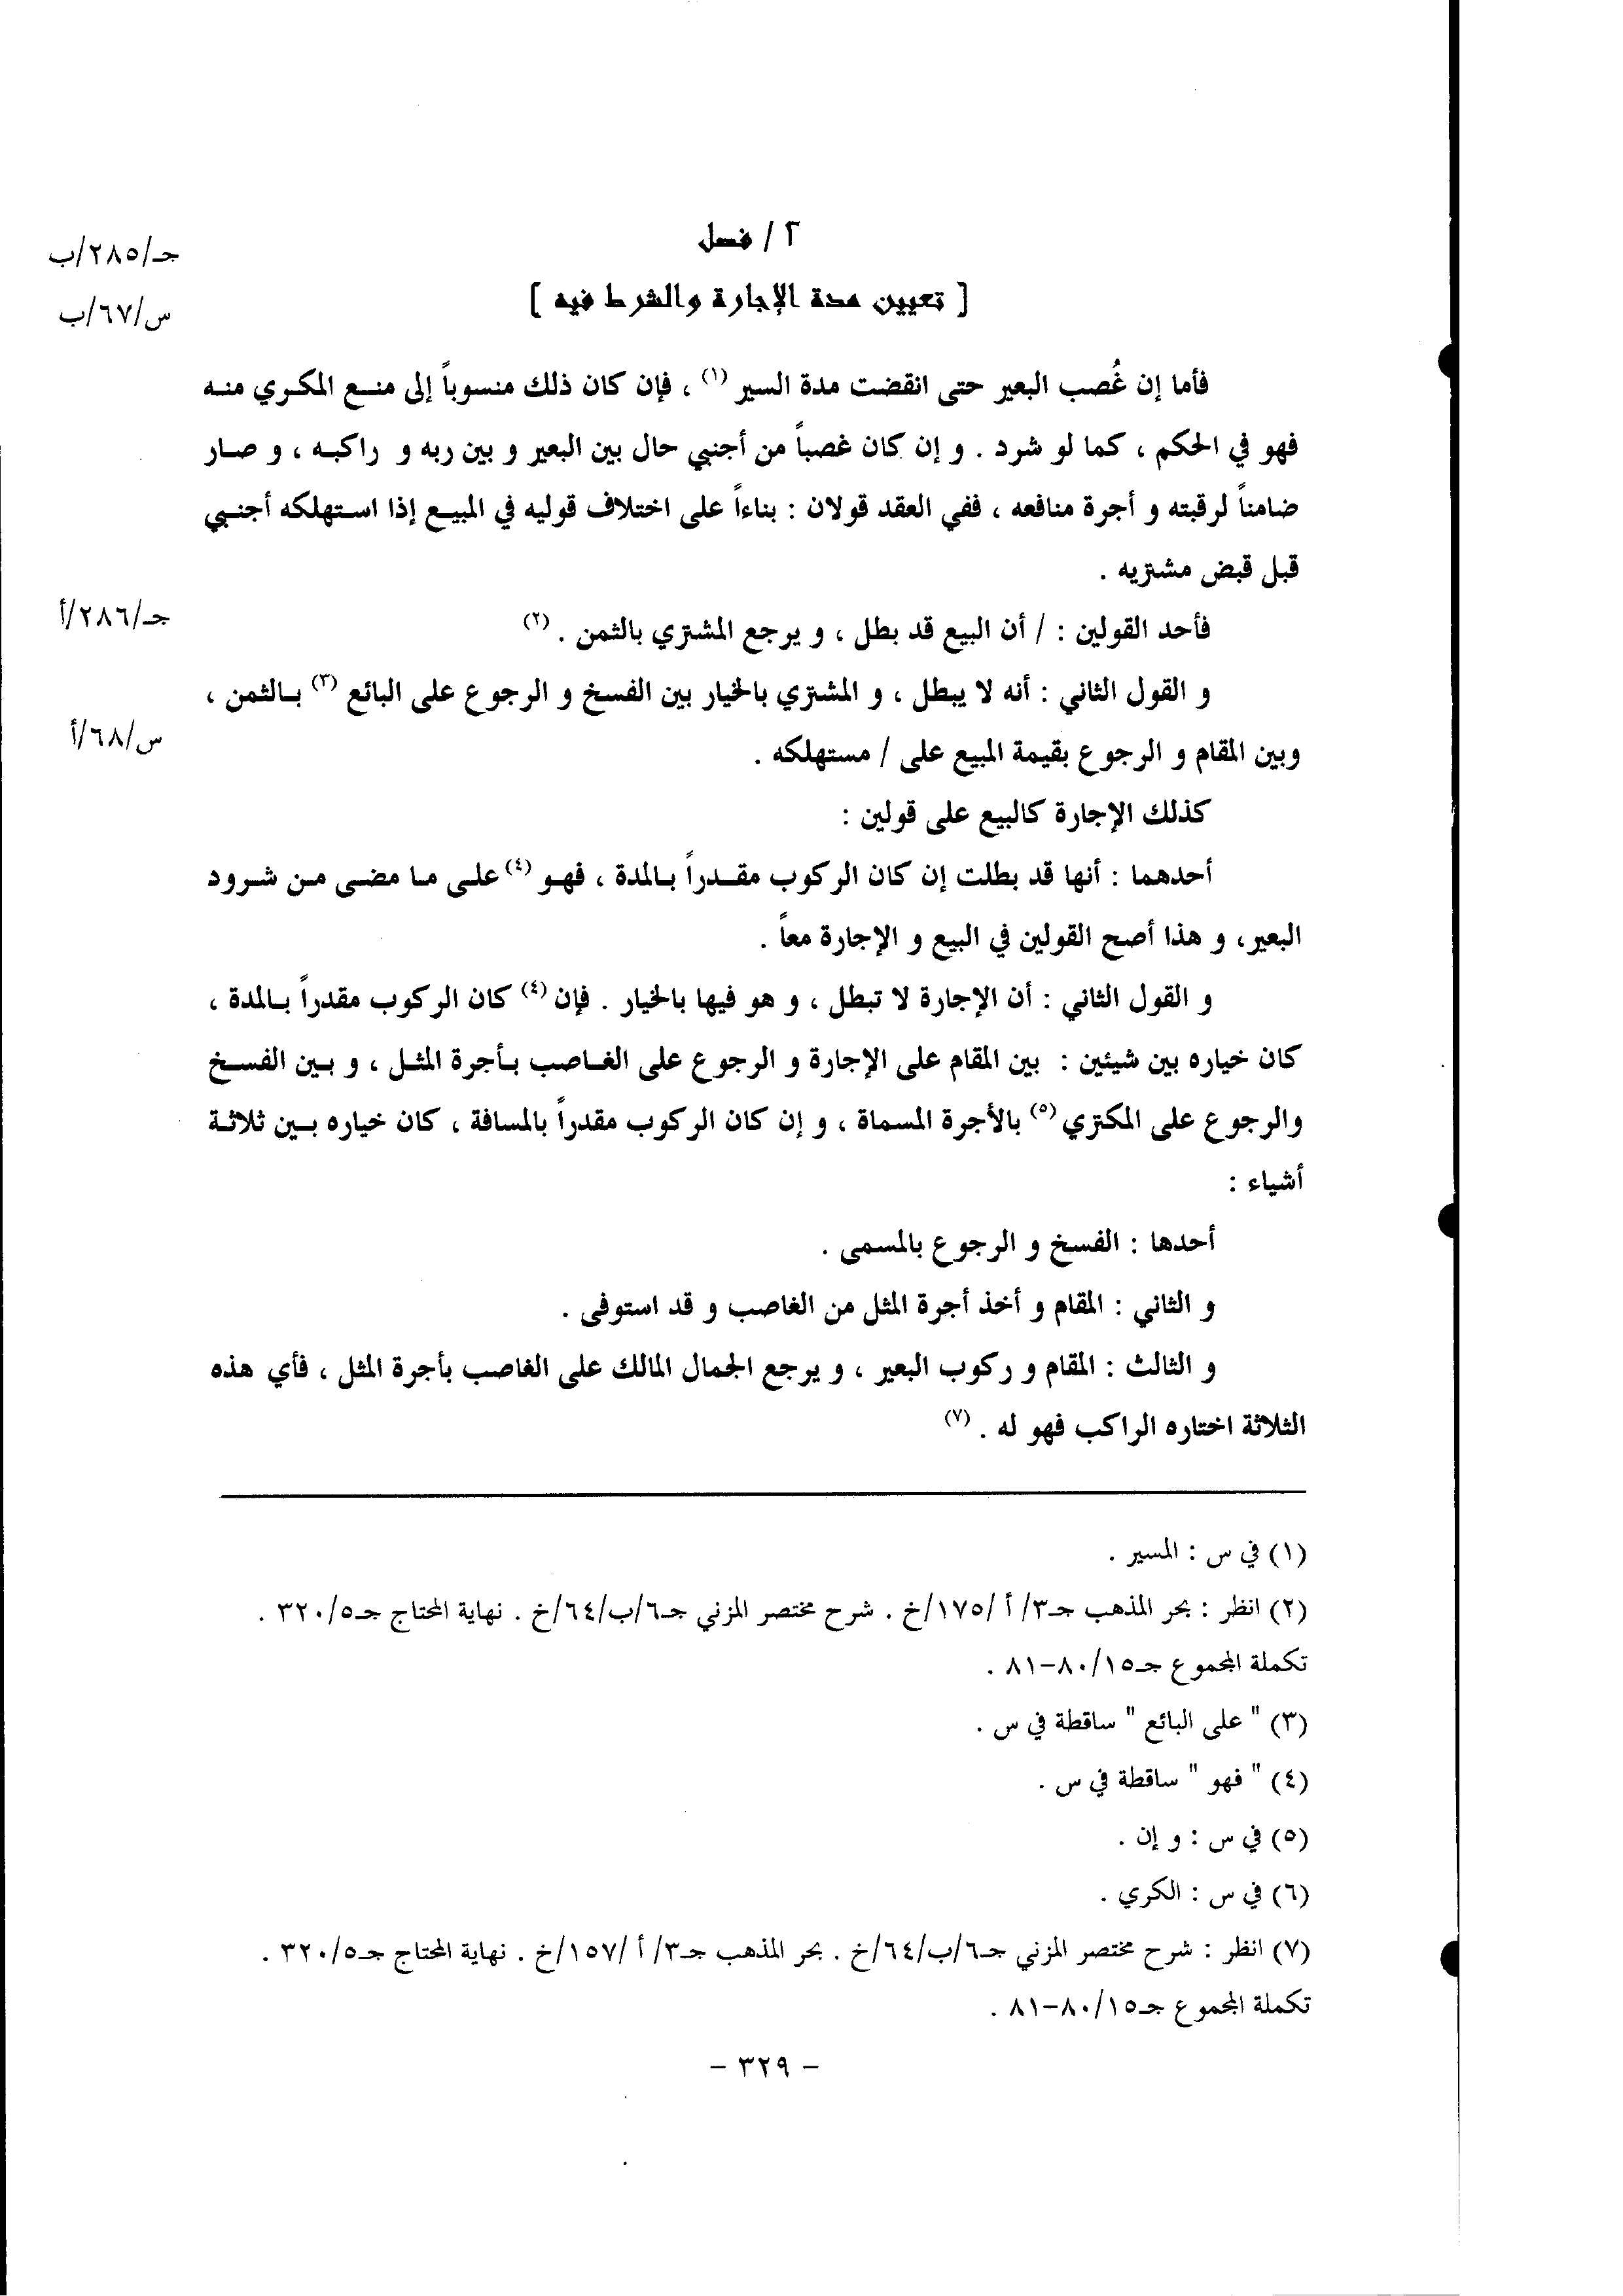 ٢ / فصل
جـ/٢٨٥/ب
[ تعيين مدة الإجارة والشرط فيه ]
س/٦٧/ب
فأما إن غُصب البعير حتى انقضت مدة السير (١) ، فإن كان ذلك منسوباً إلى منـع المكـري منـه
فهو في الحكم ، كما لو شرد . و إن كان غصباً من أجنبي حال بين البعير و بين ربه و راكبـه ، و صـار
ضامناً لرقبته و أجرة منافعه ، ففي العقد قولان : بناءاً على اختلاف قوليه في المبيـع إذا اسـتهلكه أجنـبي
قبل قبض مشتريه .
فأحد القولين : / أن البيع قد بطل ، و يرجع المشتري بالثمن . (٢)
جـ/٢٨٦/أ
و القول الثاني : أنه لا يبطل ، و المشتري بالخيار بين الفسخ و الرجوع على البائع (٣) بـالثمن ،
وبين المقام و الرجوع بقيمة المبيع على / مستهلكه .
س/٦٨/أ
كذلك الإجارة كالبيع على قولين :
أحدهما : أنها قد بطلت إن كان الركوب مقـدراً بـالمدة ، فهـو (٤) علـى مـا مضـى مـن شـرود
البعير، و هذا أصح القولين في البيع و الإجارة معاً .
و القول الثاني : أن الإجارة لا تبطل ، و هو فيها بالخيار . فإن (٤) كان الركوب مقدراً بـالمدة ،
كان خياره بين شيئين : بين المقام على الإجارة و الرجوع على الغـاصب بـأجرة المثـل ، و بـين الفسـخ
والرجوع على المكتري (٥) بالأجرة المسماة ، و إن كان الركوب مقدراً بالمسافة ، كان خياره بـين ثلاثـة
أشياء :
أحدها : الفسخ و الرجوع بالمسمى .
و الثاني : المقام و أخذ أجرة المثل من الغاصب و قد استوفى .
و الثالث : المقام و ركوب البعير ، و يرجع الجمال المالك على الغاصب بأجرة المثل ، فأي هذه
الثلاثة اختاره الراكب فهو له . (٧)
(١) في س : المسير .
(٢) انظر : بحر المذهب جـ٣/ أ /١٧٥/خ . شرح مختصر المزني جـ٦/ب/٦٤/خ . نهاية المحتاج جـ٣٢٠/٥ .
تكملة المجموع جـ٨٠/١٥-٨١ .
(٣) " على البائع " ساقطة في س .
(٤) " فهو " ساقطة في س .
(٥) في س : و إن .
(٦) في س : الكري .
(٧) انظر : شرح مختصر المزني جـ٦/ب/٦٤/خ . بحر المذهب جـ٣/ أ /١٥٧/خ . نهاية المحتاج جـ٣٢٠/٥ .
تكملة المجموع جـ٨٠/١٥-٨١ .
- ٣٢٩ -